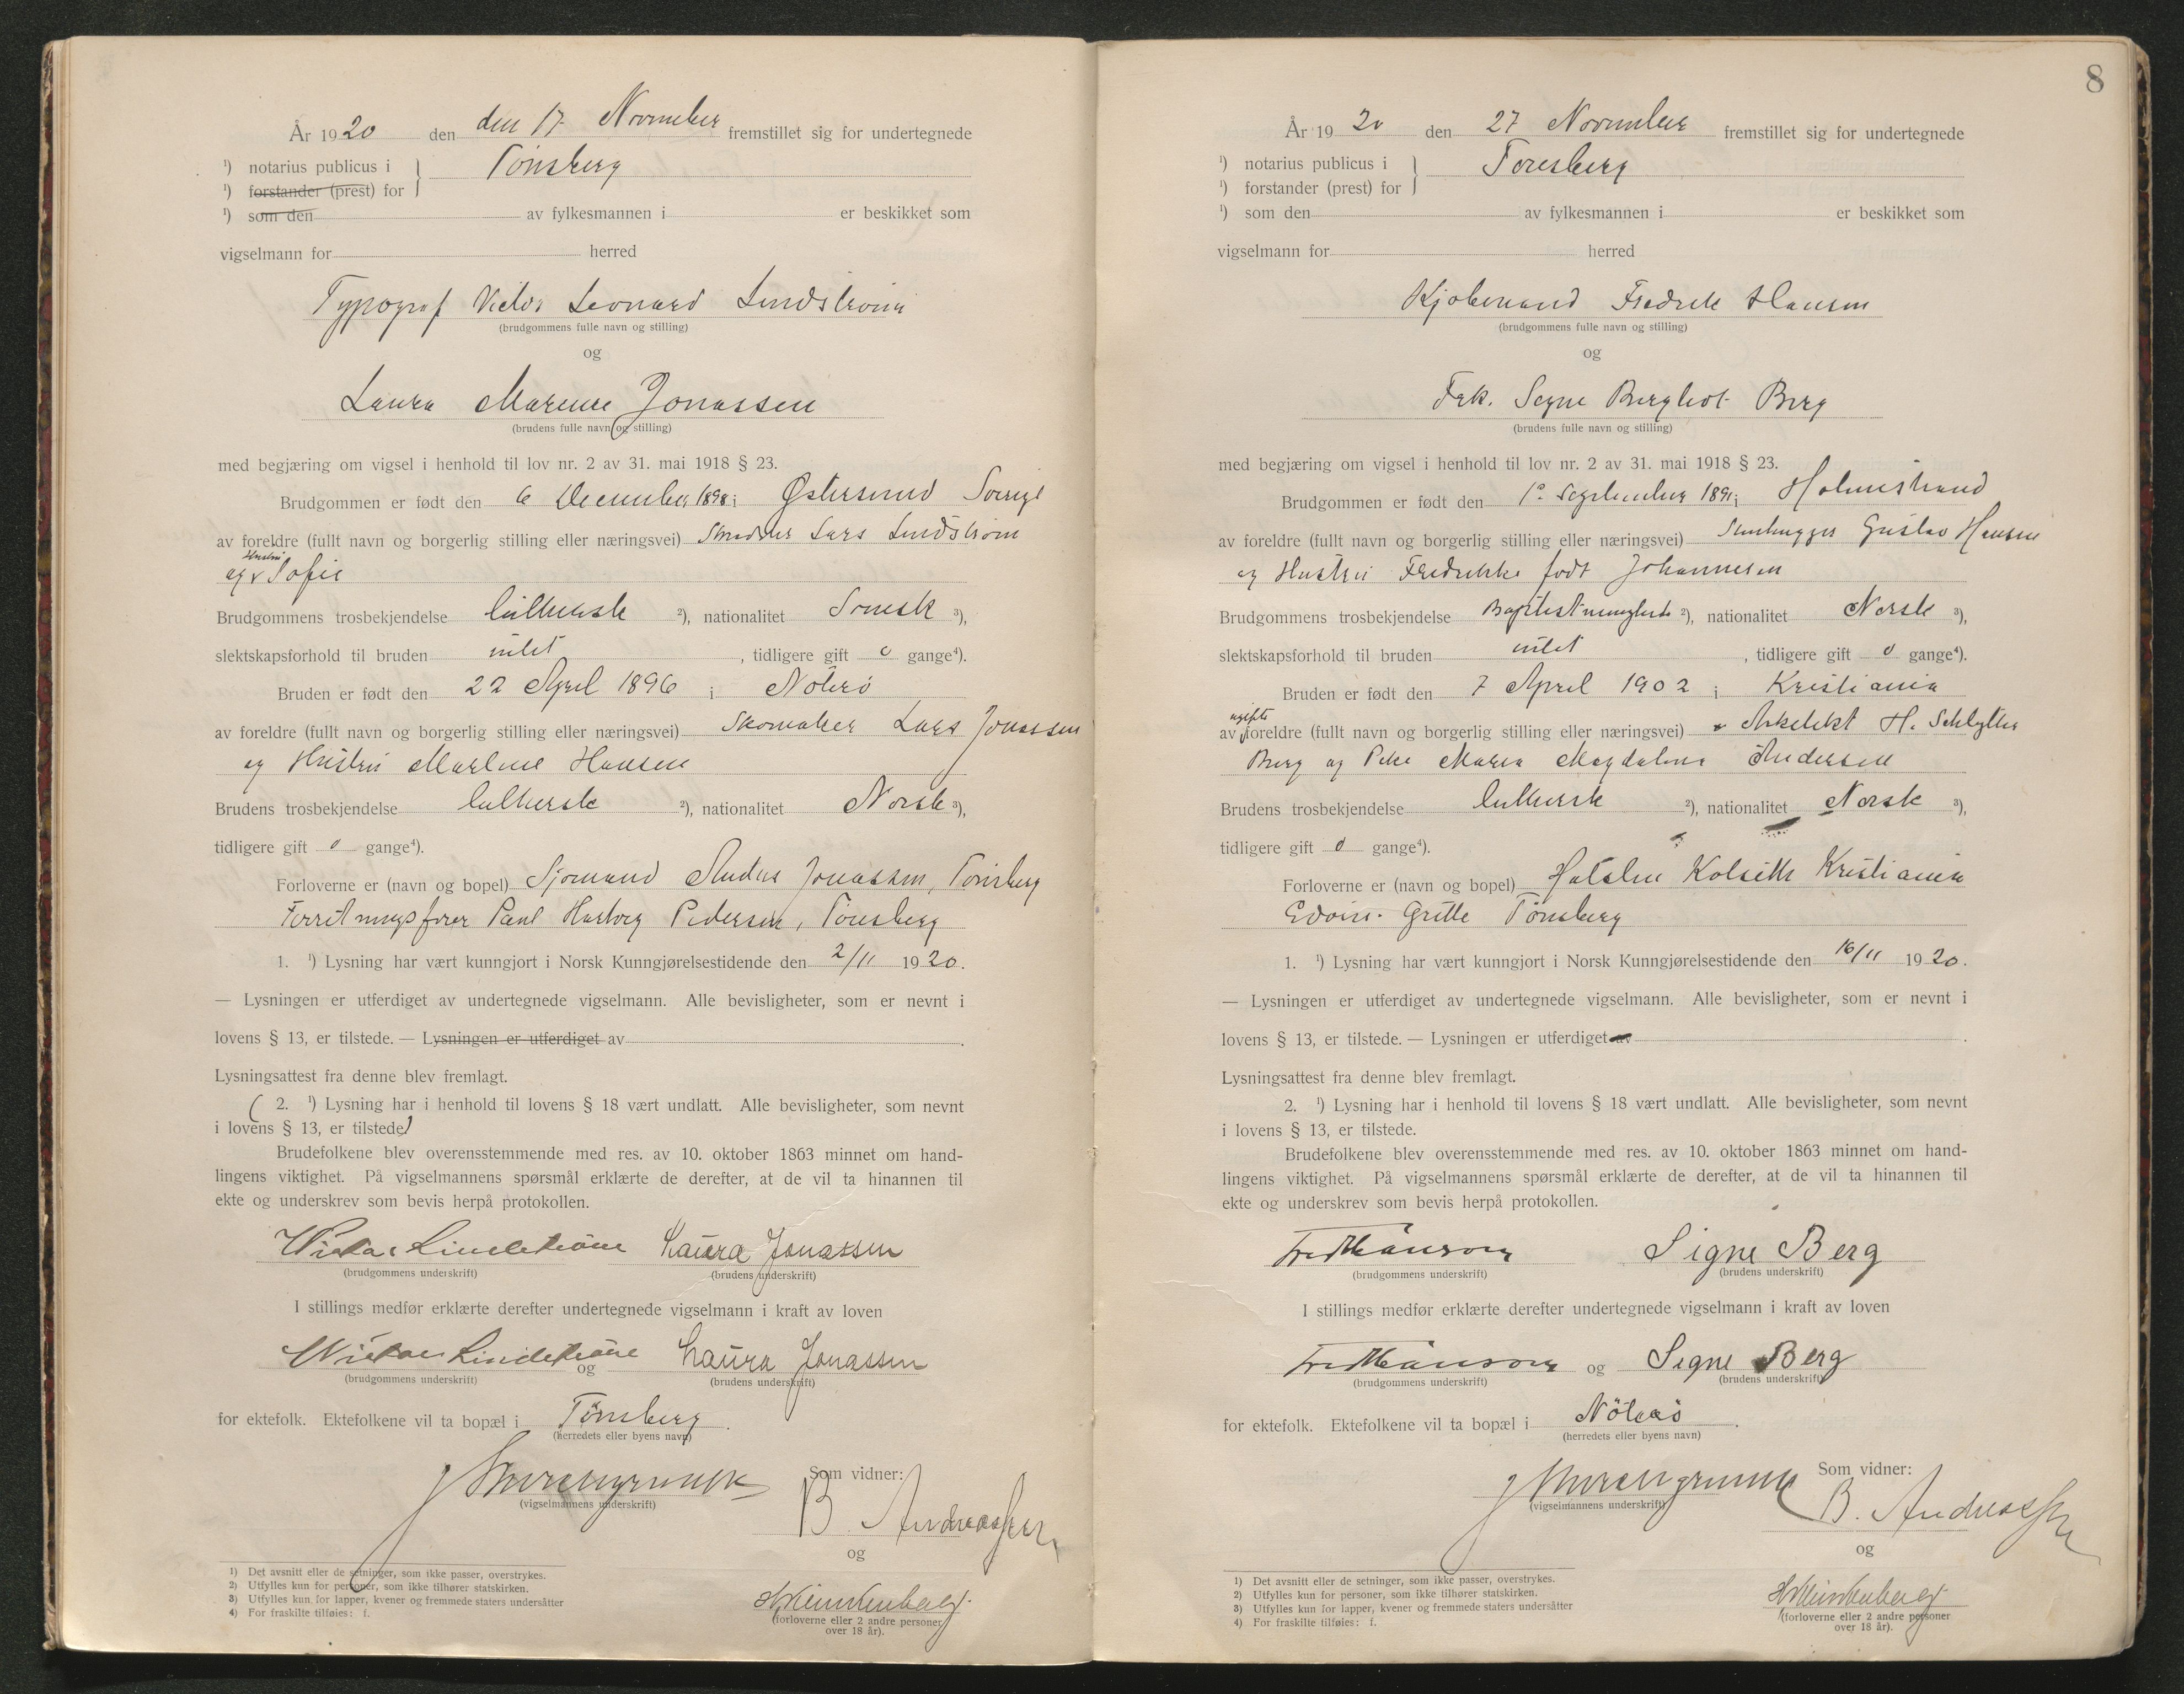 År 1920 den den 17 November fremstillet sig for undertegnede
¹) notarius publicus i } Tönsberg
¹) forstander (prest) for
¹) som den av fylkesmannen i er beskikket som
vigselmann for herred
Typograf Victor Leonard Lindström
(brudgommens fulle navn og stilling)
og
Laura Marense Jonassen
(brudens fulle navn og stilling)
med begjæring om vigsel i henhold til lov nr. 2 av 31. mai 1918 § 23.
Brudgommen er født den 6 December 1898 i Østersund Sverige
av foreldre (fullt navn og borgerlig stilling eller næringsvei) Skredder Lars Lindström
og Hustru Sofie
Brudgommens trosbekjendelse luthersk ²), nationalitet Svensk ³),
slektskapsforhold til bruden intet , tidligere gift 0 gange⁴).
Bruden er født den 22 April 1896 i Nöterö
av foreldre (fullt navn og borgerlig stilling eller næringsvei) Skomaker Lars Jonassen
og Hustru Marline Hansen
Brudens trosbekjendelse luthersk ²), nationalitet Norsk ³),
tidligere gift 0 gange⁴).
Forloverne er (navn og bopel) Sjömand Anders Jonassen, Tönsberg
Forretningsfører Paul Pedersen, Tönsberg
1. ¹) Lysning har vært kunngjort i Norsk Kunngjørelsestidende den 2/11 1920.
— Lysningen er utferdiget av undertegnede vigselmann. Alle bevisligheter, som er nevnt i
lovens § 13, er tilstede. — Lysningen er utferdiget av .
Lysningsattest fra denne blev fremlagt.
( 2. ¹) Lysning har i henhold til lovens § 18 vært undlatt. Alle bevisligheter, som nevnt
i lovens § 13, er tilstede)
Brudefolkene blev overensstemmende med res. av 10. oktober 1863 minnet om hand-
lingens viktighet. På vigselmannens spørsmål erklærte de derefter, at de vil ta hinannen til
ekte og underskrev som bevis herpå protokollen.
Victor Lindström Laura Jonassen
(brudgommens underskrift) (brudens underskrift)
I stillings medfør erklærte derefter undertegnede vigselmann i kraft av loven
Victor Lindström og Laura Jonassen
(brudgommens underskrift) (brudens underskrift)
for ektefolk. Ektefolkene vil ta bopæl i Tönsberg .
(herredets eller byens navn)
Som vidner:
(vigselmannens underskrift)
B. Andreassen
og
(forloverne eller 2 andre personer
over 18 år).
1) Det avsnitt eller de setninger, som ikke passer, overstrykes.
2) Utfylles kun for personer, som ikke tilhører statskirken.
3) Utfylles kun for lapper, kvener og fremmede staters undersåtter
4) For fraskilte tilføies: f.
8
År 1920 den 27 November fremstillet sig for undertegnede
¹) notarius publicus i } Tönsberg
¹) forstander (prest) for
¹) som den av fylkesmannen i er beskikket som
vigselmann for herred
Kjöbmand Fredrik Hansen
(brudgommens fulle navn og stilling)
og
Frk. Signe Bergliot Berg
(brudens fulle navn og stilling)
med begjæring om vigsel i henhold til lov nr. 2 av 31. mai 1918 § 23.
Brudgommen er født den September 1891 i Holmestrand
av foreldre (fullt navn og borgerlig stilling eller næringsvei) Stenhugger Gustav Hansen
og Hustru Fredrikke födt Johannesen
Brudgommens trosbekjendelse Baptistmenighed ²), nationalitet Norsk ³),
slektskapsforhold til bruden intet , tidligere gift 0 gange⁴).
Bruden er født den 7 April 1902 i Kristiania
av ugifte foreldre (fullt navn og borgerlig stilling eller næringsvei) Arkitekt H. Schlytter
Berg og Pike Maren Magdalena Andersen
Brudens trosbekjendelse luthersk ²), nationalitet Norsk ³),
tidligere gift 0 gange⁴).
Forloverne er (navn og bopel) Kristiania
Edvin Tönsberg
1. ¹) Lysning har vært kunngjort i Norsk Kunngjørelsestidende den 16/11 1920.
— Lysningen er utferdiget av undertegnede vigselmann. Alle bevisligheter, som er nevnt i
lovens § 13, er tilstede. — Lysningen er utferdiget av .
Lysningsattest fra denne blev fremlagt.
2. ¹) Lysning har i henhold til lovens § 18 vært undlatt. Alle bevisligheter, som nevnt
i lovens § 13, er tilstede.
Brudefolkene blev overensstemmende med res. av 10. oktober 1863 minnet om hand-
lingens viktighet. På vigselmannens spørsmål erklærte de derefter, at de vil ta hinannen til
ekte og underskrev som bevis herpå protokollen.
Fred Hanson Signe Berg
(brudgommens underskrift) (brudens underskrift)
I stillings medfør erklærte derefter undertegnede vigselmann i kraft av loven
Fred Hanson og Signe Berg
(brudgommens underskrift) (brudens underskrift)
for ektefolk. Ektefolkene vil ta bopæl i Nöterö .
(herredets eller byens navn)
Som vidner:
(vigselmannens underskrift)
B. Andreassen
og
(forloverne eller 2 andre personer
over 18 år).
1) Det avsnitt eller de setninger, som ikke passer, overstrykes.
2) Utfylles kun for personer, som ikke tilhører statskirken.
3) Utfylles kun for lapper, kvener og fremmede staters undersåtter
4) For fraskilte tilføies: f.